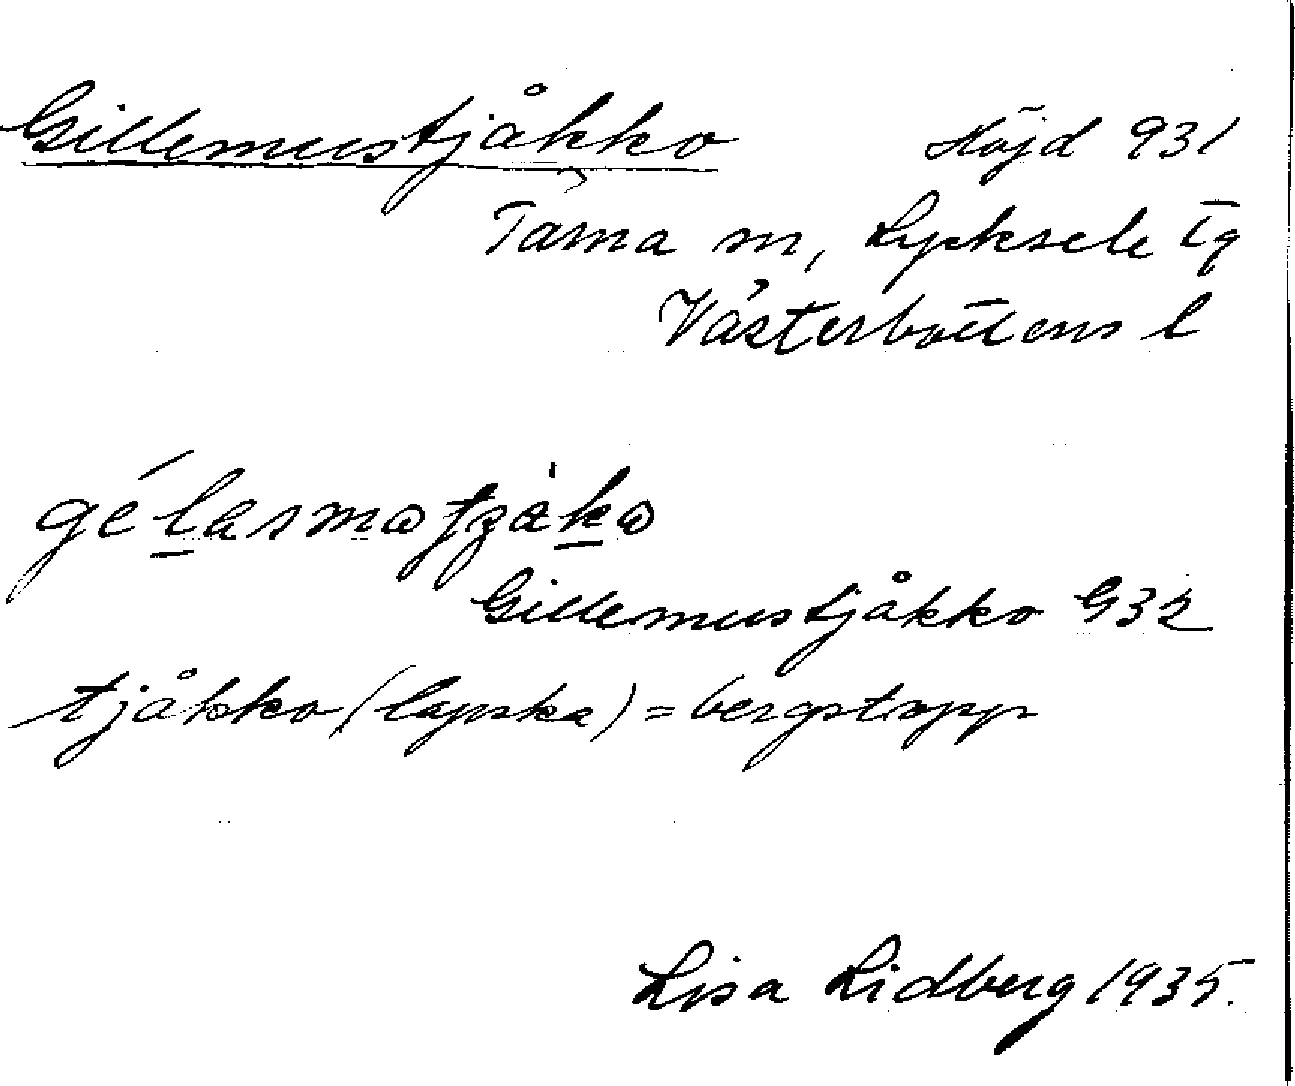 Gillemustjåkko Höjd 931
Tärna sn, Lycksele tg
Västerbottens l
Gillemustjåkko G32
tjåkko (lapska) = bergstopp
Lisa Lidberg 1935.